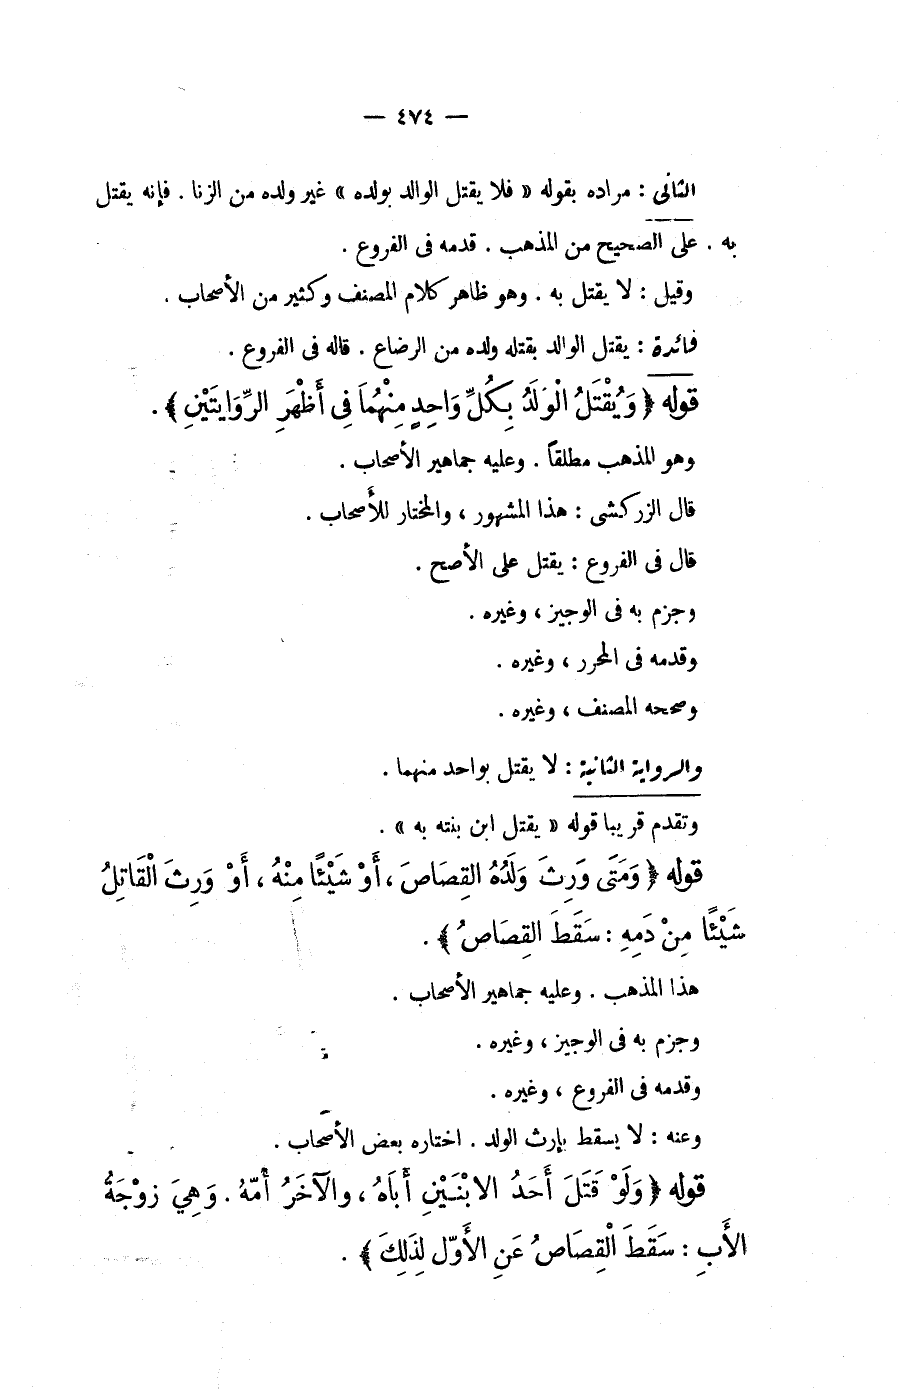 — ٤٧٤ —
الثانى : مراده بقوله « فلا يقتل الوالد بولده » غير ولده من الزنا . فإنه يقتل
به . على الصحيح من المذهب . قدمه فى الفروع .
وقيل : لا يقتل به . وهو ظاهر كلام المصنف وكثير من الأصحاب .
فائدة : يقتل الوالد بقتله ولده من الرضاع . قاله فى الفروع .
قوله ﴿ وَيُقْتَلُ الْوَلَدُ بِكُلِّ وَاحِدٍ مِنْهُمَا فِى أَظْهَرِ الرِّوَايَتَيْنِ ﴾ .
وهو المذهب مطلقاً . وعليه جماهير الأصحاب .
قال الزركشى : هذا المشهور ، والمختار للأصحاب .
قال فى الفروع : يقتل على الأصح .
وجزم به فى الوجيز ، وغيره .
وقدمه فى المحرر ، وغيره .
وصححه المصنف ، وغيره .
والرواية الثانية : لا يقتل بواحد منهما .
وتقدم قريبا قوله « يقتل ابن بنته به » .
قوله ﴿ وَمَتَى وَرِثَ وَلَدُهُ القِصَاصَ ، أَوْ شَيْئًا مِنْهُ ، أَوْ وَرِثَ الْقَاتِلُ
شَيْئًا مِنْ دَمِهِ : سَقَطَ القِصَاصُ ﴾ .
هذا المذهب . وعليه جماهير الأصحاب .
وجزم به فى الوجيز ، وغيره .
وقدمه فى الفروع ، وغيره .
وعنه : لا يسقط بإرث الولد . اختاره بعض الأصحاب .
قوله ﴿ وَلَوْ قَتَلَ أَحَدُ الابْنَيْنِ أَبَاهُ ، والآخَرُ أُمّهُ . وَهِيَ زوْجَةُ
الأَبِ : سَقَطَ الْقِصَاصُ عَنِ الأَوّلِ لِذَلِكَ ﴾ .